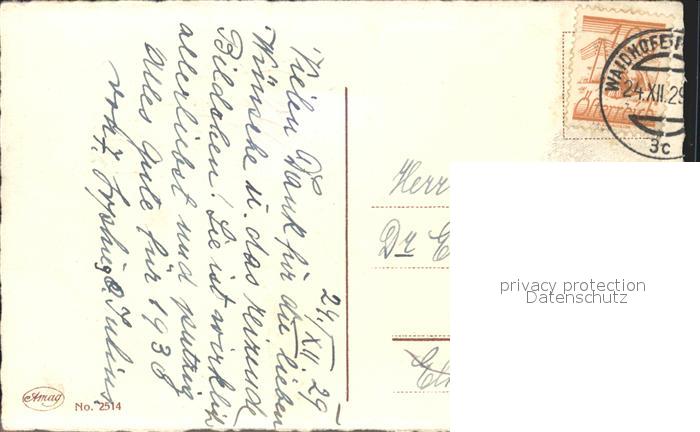 24./XII. 29
Vielen Dank für die lieben
Wünsche u. das reizende
Bildchen! Sie ist wirklich
allerliebst und putzig
Alles Gute für 1930
von
Herr
Dr
WAIDHOFE
24.XII.29
3c
10
Österreich
Amag
No. 2514
privacy protection
Datenschutz